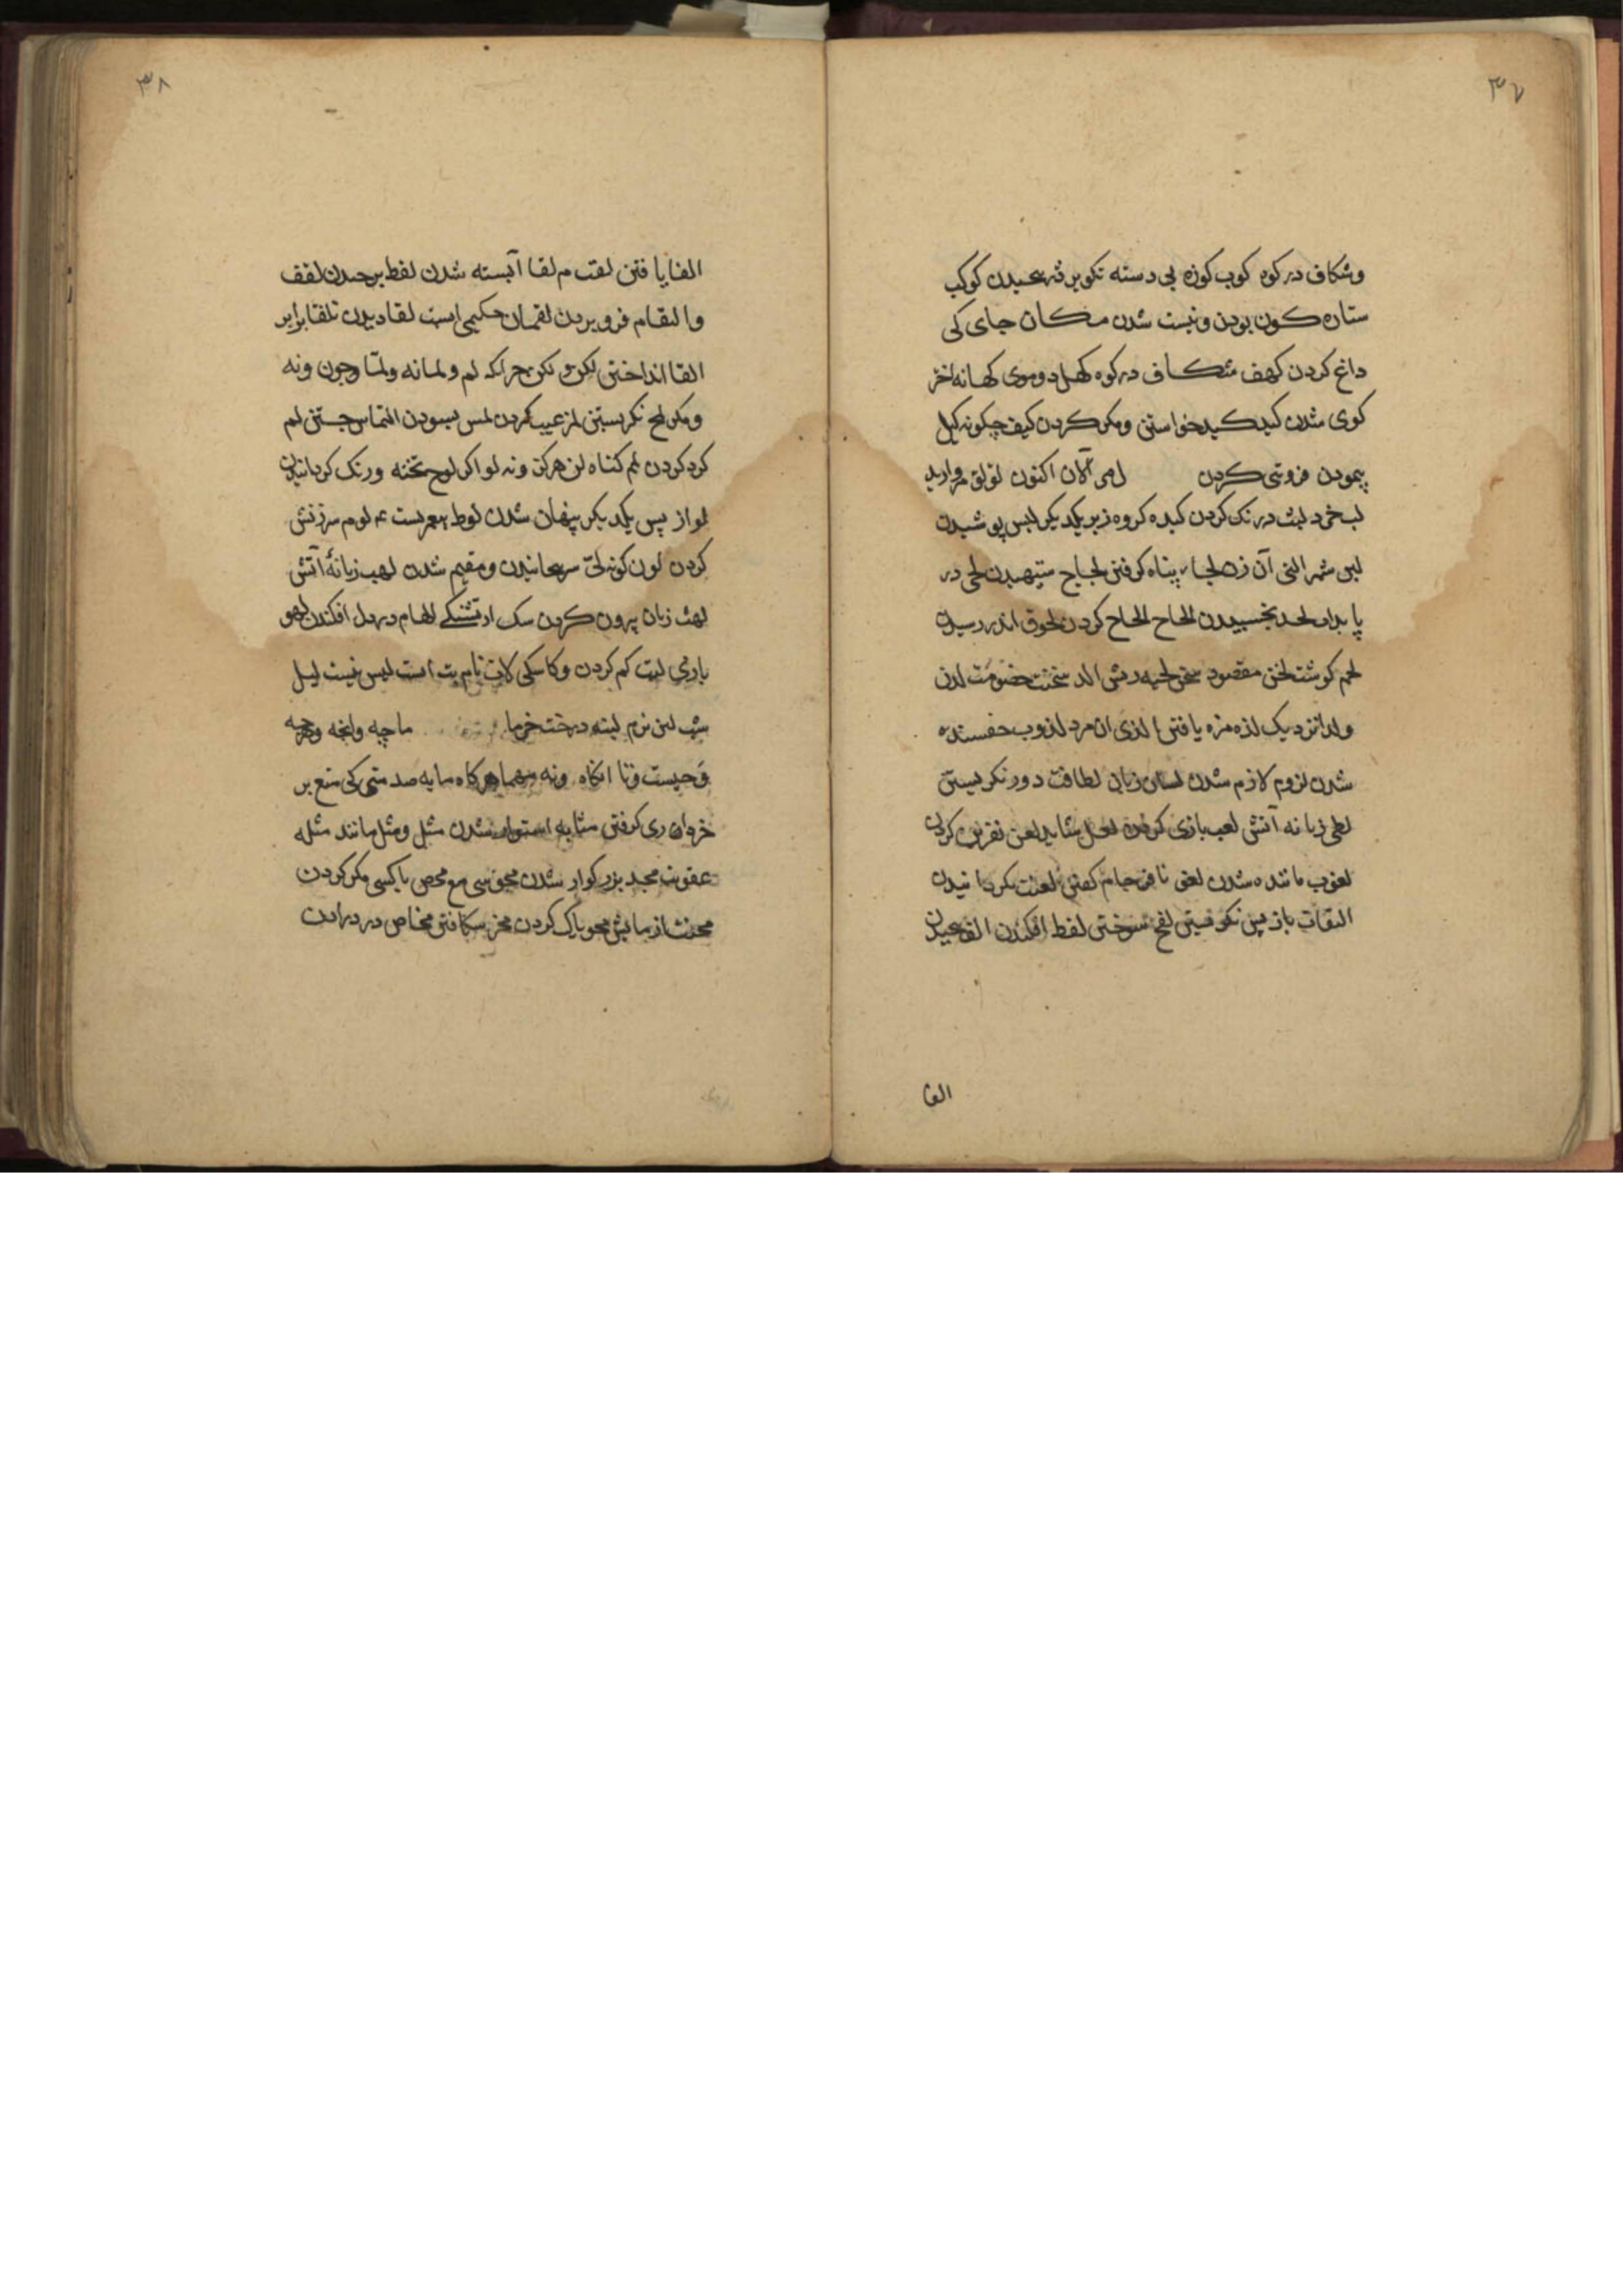 ۳۷
وشکاف در کوه کوب کوزه بی دسته تکویر کوکب
ستاره کون بودن و نیست شدن مکان جای کی
داغ کردن کهف شکاف در کوه کهل دو موی کهانه اختر
کوی شدن کید کید خواستن و مکر کردن کیف چکونه کیل
پیمودن فروتنی کردن الآن اکنون لؤلؤ مروارید
لب خرد لبث درنک کردن لبده کروه زبر یکدیکر لبس پوشیدن
لبن شیر التی آن زن لجاء پناه کرفتن لجاج ستیهیدن لجی در
یا لحد بچسبیدن الحاح الحاح کردن لحوق اندر رسیدن
لحم کوشت لحن مقصود سخن لحیه ریش الد سخت خصومت لدن
ولدا نزدیک لذه مزه یافتن الذی ان مرد لذوب
شدن لزوم لازم شدن لسان زبان لطافت دور نکریستن
لظی زبانه آتش لعب بازی کردن لعل شاید لعن نفرین کردن
لغوب مانده شدن لغو نافرجام کفتن لفت بکردانیدن
التفات باز پس نکریستن لفح سوختن لفظ افکندن
الفا
۳۸
الفا یافتن لقب م لقا آبسته شدن لقط برچیدن لقف
والتقام فرو بردن لقمان حکیمی است لقا دیدن تلقا برابر
القا انداختن لکن و لکن جز آنکه لم و لما نه ولما وچون ونه
ومکر لمح نکریستن لمز عیب کردن لمس بسودن التماس جستن لمم
کرد کردن لمم کناه لن هرکز و نه لو اکر لوح تخته ورنک کردانیدن
لواذ پس یکدیکر پنهان شدن لوط پیغمبر است ع لوم سرزنش
کردن لون کونه لی و مقیم شدن لهب زبانهٔ آتش
لهث زبان بیرون کردن سک از تشنکی الهام در دل افکندن لهو
بازی لیت کم کردن و کاشکی لات نام بت است لیس نیست لیل
شب لین نرم لینه درخت خرما ما چه وانچه وهرچه
وچیست وتا انکاه ونه مهما هرکاه مایه صد متی کی متع بر
خرداری کرفتن متانه استوار شدن مثل ومثل مانند مثله
عقوبت مجد بزرکوار شدن مجوسی مع محص با کسی مکر کردن
محنت ازمایش محو پاک کردن مخر شکافتن مخاض درد زادن